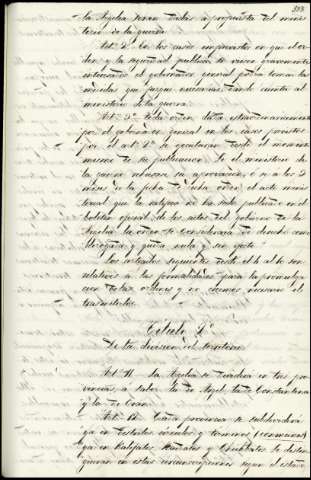 313
la Argelia seran dados a propuesta del minis
terio de la guerra.
Art. 2º En los casos imprevistos en que el or-
den y la seguridad publica se viesen gravemente
interesados el gobernador general podrá tomar las
medidas que juzgue necesarias dando cuenta al
ministerio de la guerra.
Art. 3º Toda orden dada extraordinariamente
por el gobernador general en los casos previstos
por el art. 2º se ejecutará desde el momento
mismo de su publicacion. Si el ministerio de
la guerra rehusase su aprovacion, o si a los 3
meses de la fecha de dicha orden, el acto minis
terial que la ratifique no ha sido publicado en el
boletin oficial de los actos del gobierno de la
Argelia la orden se considerará de derecho como
derogada y queda nula y sin efecto.
Los articulos siguientes desde el 4 al 10 son
relativos a las formalidades para la promulga
cion de las ordenes y no creemos necesario el
trasmitirlos.
Titulo 2º
De la division del territorio
Art. 11. La Argelia se dividirá en tres pro
vincias, a saber la de Argel la de Constantina
y la de Oran.
Art. 12. Cada provincia se subdividirá
ya en Distritos circulos y terminos (communes)
ya en Kalifatos Aghalatos y Cheikhatos. Se distin
guiran en estas circunscripciones segun el estado